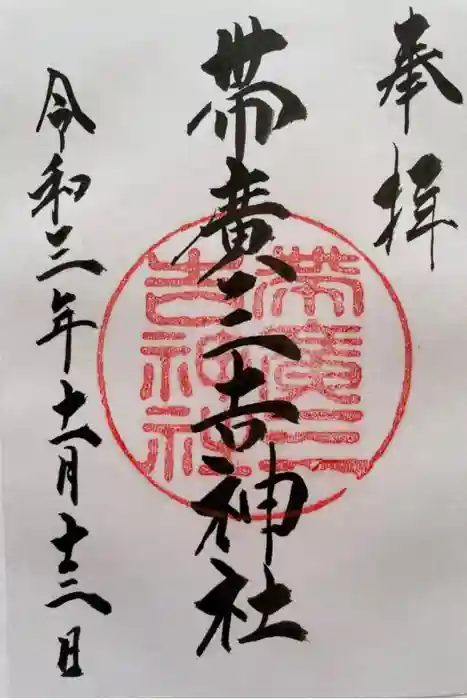 奉拝
帯廣三吉神社
帯廣三吉神社
令和三年十一月十三日